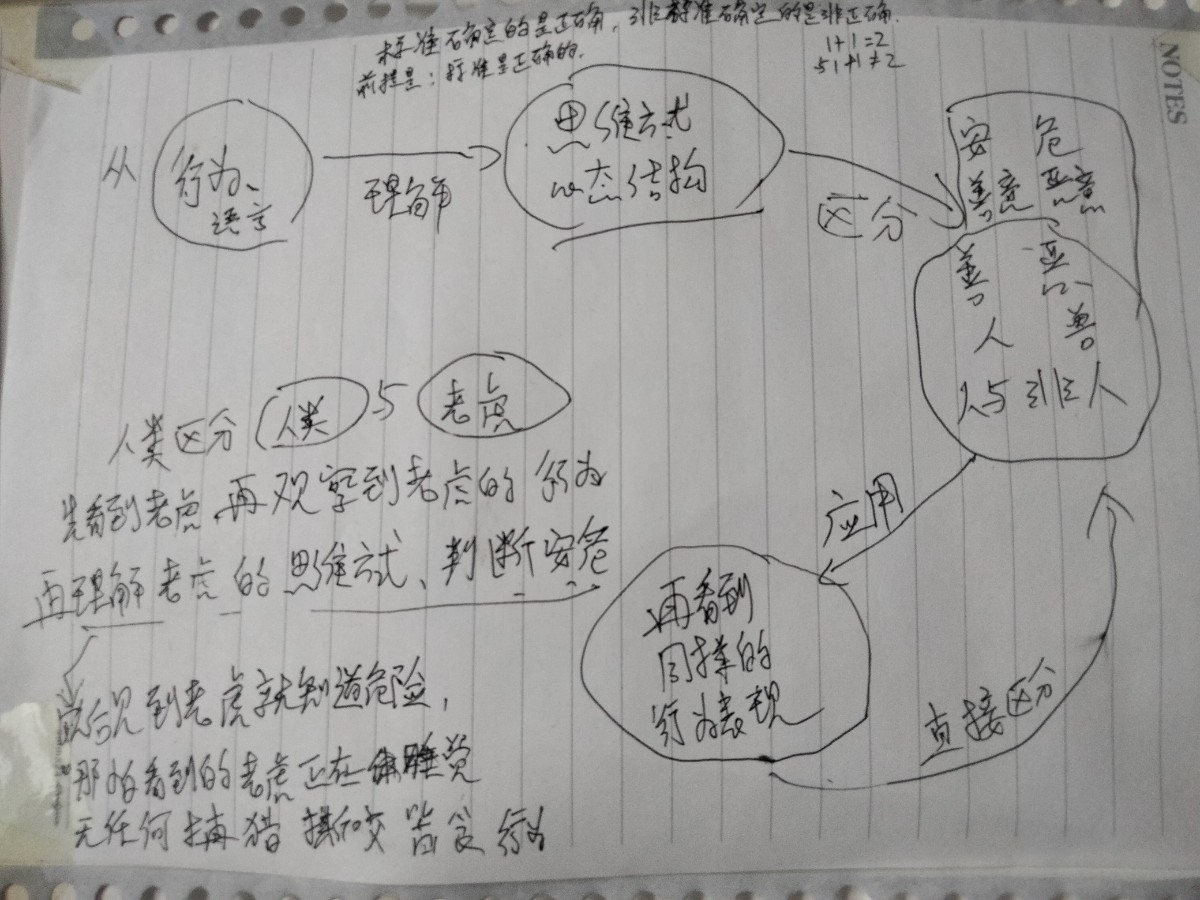 标准确定的是正确，非标准确定的是非正确.
前提是：标准是正确的.
1+1=2
51+1≠2
NOTES
从
行为、
语言
理解
思维方式
心态结构
区分
安 危
善意 恶意
善 恶
人 兽
人与非人
人类区分 人类 与 老虎
先看到老虎,再观察到老虎的 行为
再理解老虎的思维方式、判断安危
应用
再看到
同样的
行为表现
直接区分
以后见到老虎就知道危险，
那怕看到的老虎正在睡觉
无任何捕猎 撕咬 皆食 行为